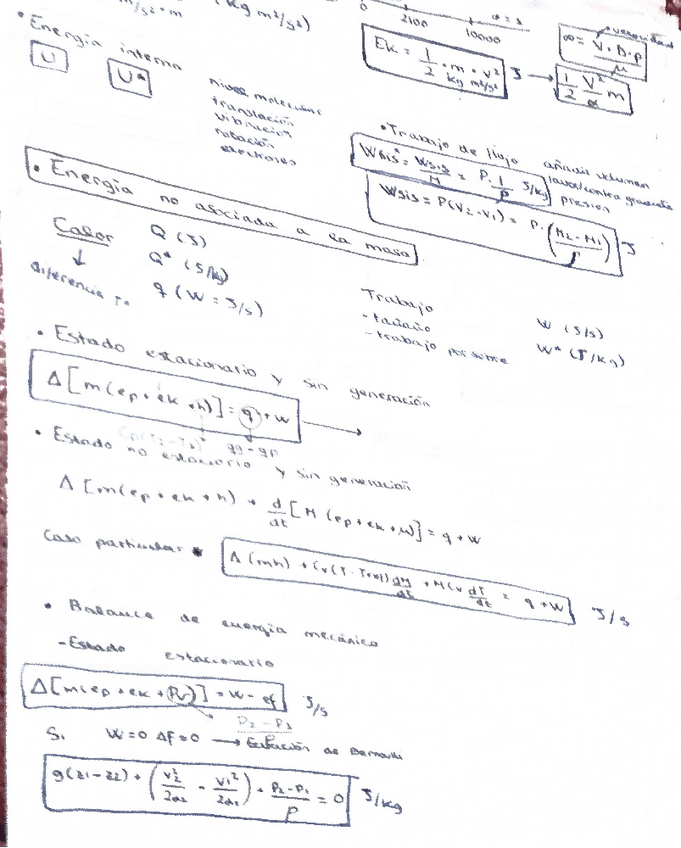 m/s² · m
(kg m²/s²)
0 2100 10000
α = 1
velocidad
∞ = V · D · ρ / μ
Ek = 1/2 · m · v² J → 1/2 V²/α m
kg m²/s²
• Energía interna
U U*
nivel molecular
translación
vibración
rotación
electrones
• Trabajo de flujo
añadir volumen
favor/contra gradiente
presión
Wsis* = Wsis/m = P · 1/ρ J/kg
Wsis = P(V2 - V1) = P · (M2 - M1 / ρ) J
• Energía no asociada a la masa
Calor Q (J)
↓ Q* (J/kg)
diferencia Tª q (W = J/s)
Trabajo W (J/s)
W* (J/kg)
• Estado estacionario y sin generación
Δ[m(ep + ek + h)] = q + w →
Cp(T2 - T1) qg - qp
• Estado no estacionario y sin generación
Δ[m(ep + ek + h) + d/dt [M(ep + ek + u)] = q + w
Caso particular: * Δ(mh) + Cv(T - Tref) dM/dt + MCv dT/dt = q + W J/s
• Balance de energía mecánico
- Estado estacionario
Δ[m(ep + ek + Pv)] = w - ef J/s
P2 - P1
Si W = 0 ΔF = 0 → Ecuación de Bernoulli
g(z1 - z2) + (V2²/2α2 - V1²/2α1) + P2 - P1 / ρ = 0 J/kg